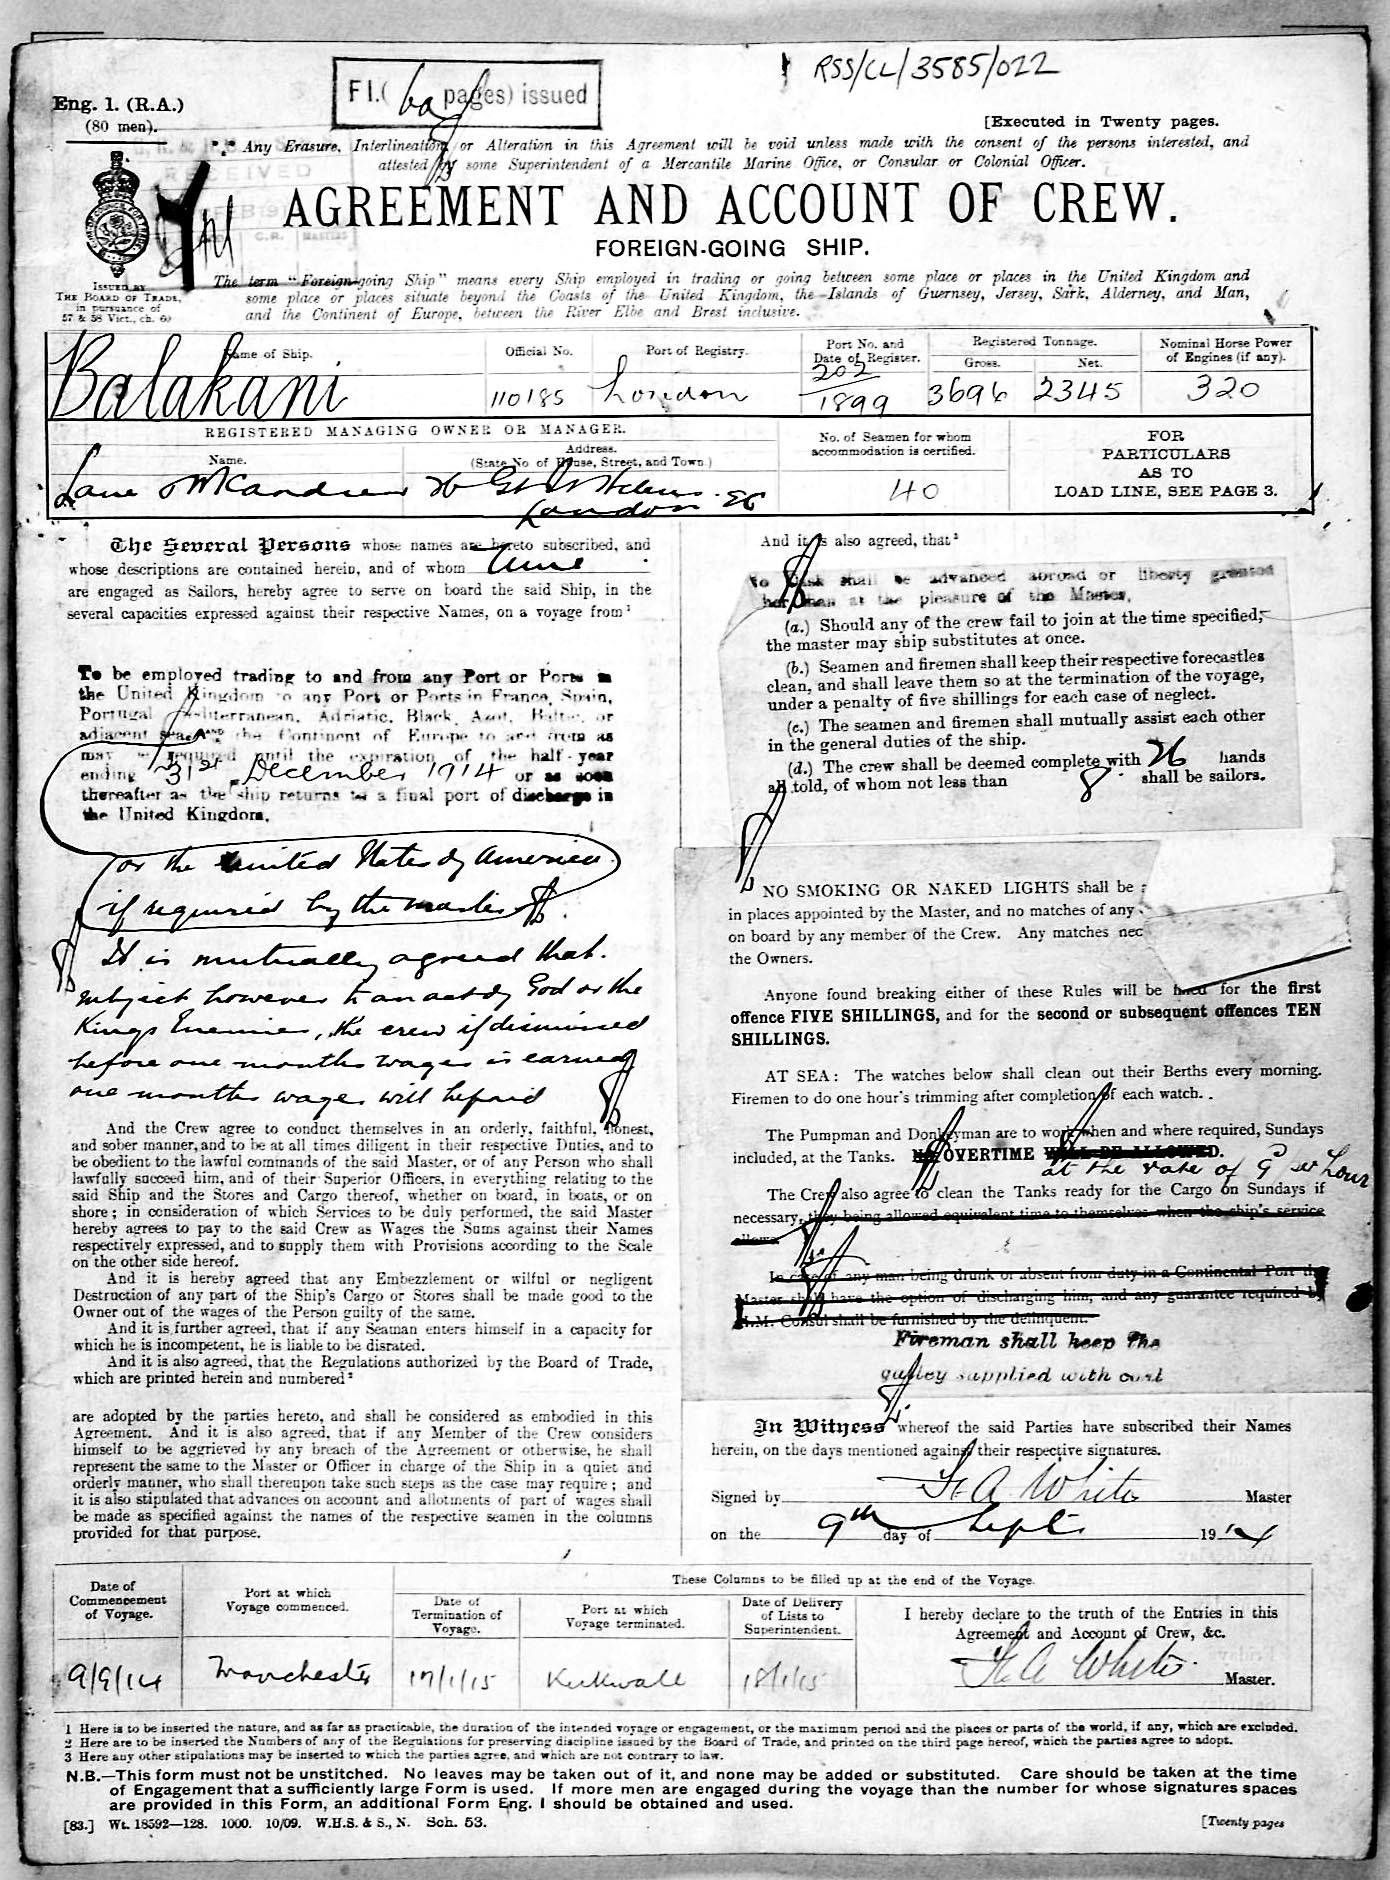 RSS/CL/3585/022
F1.( pages) issued
Eng. 1. (R.A.)
(80 men).
[Executed in Twenty pages.
*⁎* Any Erasure, Interlineation, or Alteration in this Agreement will be void unless made with the consent of the persons interested, and
attested by some Superintendent of a Mercantile Marine Office, or Consular or Colonial Officer.
RECEIVED
AGREEMENT AND ACCOUNT OF CREW.
FOREIGN-GOING SHIP.
ISSUED BY
THE BOARD OF TRADE,
in pursuance of
57 & 58 Vict., ch. 60
The term "Foreign-going Ship" means every Ship employed in trading or going between some place or places in the United Kingdom and
some place or places situate beyond the Coasts of the United Kingdom, the Islands of Guernsey, Jersey, Sark, Alderney, and Man,
and the Continent of Europe, between the River Elbe and Brest inclusive.
Name of Ship.
Official No.
Port of Registry.
Port No. and
Date of Register.
Registered Tonnage.
Gross.
Net.
Nominal Horse Power
of Engines (if any).
Balakani
110185
London
202
1899
3696
2345
320
REGISTERED MANAGING OWNER OR MANAGER.
Name.
Address.
(State No of House, Street, and Town.)
No. of Seamen for whom
accommodation is certified.
FOR
PARTICULARS
AS TO
LOAD LINE, SEE PAGE 3.
Lane & McAndrew 26 Gt St Helens EC
London
40
The Several Persons whose names are hereto subscribed, and
whose descriptions are contained herein, and of whom
are engaged as Sailors, hereby agree to serve on board the said Ship, in the
several capacities expressed against their respective Names, on a voyage from¹
To be employed trading to and from any Port or Ports in
the United Kingdom to any Port or Ports in France, Spain,
Portugal Mediterranean, Adriatic, Black, Azof, Baltic, or
adjacent seas AND the Continent of Europe to and from as
may be required until the expiration of the half-year
ending 31st December 1914 or as soon
thereafter as the ship returns to a final port of discharge in
the United Kingdom.
or the United States of America
if required by the master
It is mutually agreed that
subject however to an act of God or the
Kings Enemies, the crew if dismissed
before one months wages is earned
one months wages will be paid
And the Crew agree to conduct themselves in an orderly, faithful, honest,
and sober manner, and to be at all times diligent in their respective Duties, and to
be obedient to the lawful commands of the said Master, or of any Person who shall
lawfully succeed him, and of their Superior Officers, in everything relating to the
said Ship and the Stores and Cargo thereof, whether on board, in boats, or on
shore; in consideration of which Services to be duly performed, the said Master
hereby agrees to pay to the said Crew as Wages the Sums against their Names
respectively expressed, and to supply them with Provisions according to the Scale
on the other side hereof.
And it is hereby agreed that any Embezzlement or wilful or negligent
Destruction of any part of the Ship's Cargo or Stores shall be made good to the
Owner out of the wages of the Person guilty of the same.
And it is further agreed, that if any Seaman enters himself in a capacity for
which he is incompetent, he is liable to be disrated.
And it is also agreed, that the Regulations authorized by the Board of Trade,
which are printed herein and numbered²
are adopted by the parties hereto, and shall be considered as embodied in this
Agreement. And it is also agreed, that if any Member of the Crew considers
himself to be aggrieved by any breach of the Agreement or otherwise, he shall
represent the same to the Master or Officer in charge of the Ship in a quiet and
orderly manner, who shall thereupon take such steps as the case may require; and
it is also stipulated that advances on account and allotments of part of wages shall
be made as specified against the names of the respective seamen in the columns
provided for that purpose.
And it is also agreed, that³
No Cash shall be advanced abroad or liberty granted
other than at the pleasure of the Master.
(a.) Should any of the crew fail to join at the time specified,
the master may ship substitutes at once.
(b.) Seamen and firemen shall keep their respective forecastles
clean, and shall leave them so at the termination of the voyage,
under a penalty of five shillings for each case of neglect.
(c.) The seamen and firemen shall mutually assist each other
in the general duties of the ship.
(d.) The crew shall be deemed complete with 26 hands
all told, of whom not less than 8 shall be sailors.
NO SMOKING OR NAKED LIGHTS shall be
in places appointed by the Master, and no matches of any
on board by any member of the Crew. Any matches nec
the Owners.
Anyone found breaking either of these Rules will be fined for the first
offence FIVE SHILLINGS, and for the second or subsequent offences TEN
SHILLINGS.
AT SEA: The watches below shall clean out their Berths every morning.
Firemen to do one hour's trimming after completion of each watch.
The Pumpman and Donkeyman are to work when and where required, Sundays
included, at the Tanks. NO OVERTIME WILL BE ALLOWED.
at the rate of 9d per hour
The Crew also agree to clean the Tanks ready for the Cargo on Sundays if
necessary, they being allowed equivalent time to themselves when the ship's service
allows.
In case of any man being drunk or absent from duty in a Continental Port the
Master shall have the option of discharging him, and any guarantee required by
H.M. Consul shall be furnished by the delinquent.
Fireman shall keep the
galley supplied with coal
In Witness whereof the said Parties have subscribed their Names
herein, on the days mentioned against their respective signatures.
Signed by F. A. White Master
on the 9th day of Sept. 1914
Date of
Commencement
of Voyage.
Port at which
Voyage commenced.
These Columns to be filled up at the end of the Voyage.
Date of
Termination of
Voyage.
Port at which
Voyage terminated.
Date of Delivery
of Lists to
Superintendent.
I hereby declare to the truth of the Entries in this
Agreement and Account of Crew, &c.
9/9/14
Manchester
17/1/15
Kirkwall
18/1/15
F. A. White Master.
1 Here is to be inserted the nature, and as far as practicable, the duration of the intended voyage or engagement, or the maximum period and the places or parts of the world, if any, which are excluded.
2 Here are to be inserted the Numbers of any of the Regulations for preserving discipline issued by the Board of Trade, and printed on the third page hereof, which the parties agree to adopt.
3 Here any other stipulations may be inserted to which the parties agree, and which are not contrary to law.
N.B.—This form must not be unstitched. No leaves may be taken out of it, and none may be added or substituted. Care should be taken at the time
of Engagement that a sufficiently large Form is used. If more men are engaged during the voyage than the number for whose signatures spaces
are provided in this Form, an additional Form Eng. 1 should be obtained and used.
[83.] Wt. 18592—128. 1000. 10/09. W.H.S. & S., N. Sch. 53.
[Twenty pages